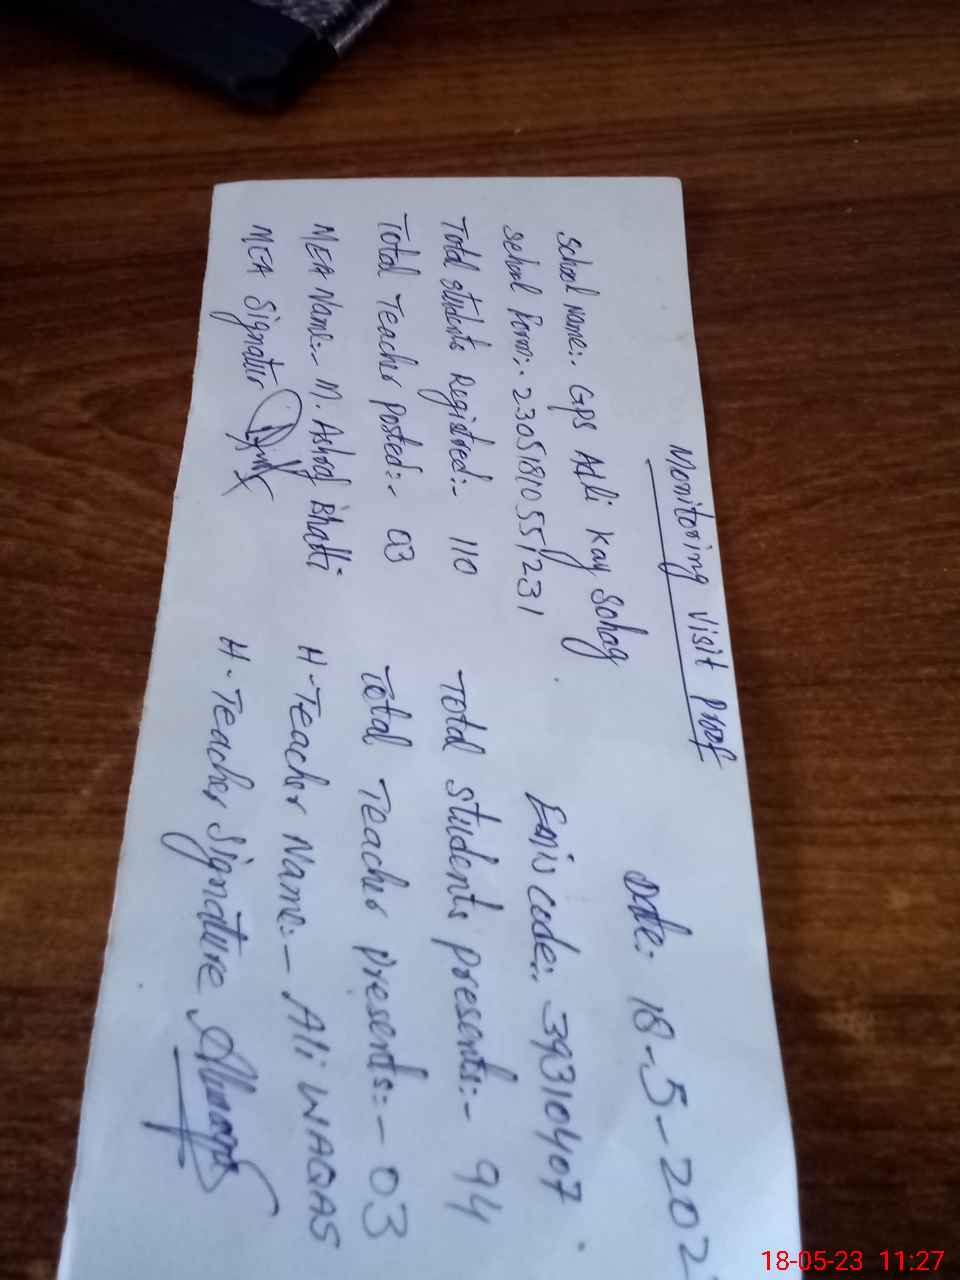 Monitoring Visit Proof
Date: 18-5-202
School Name:- GPS Adli Kay Sohag
School Form:- 23051810551231 Emis Code:- 39310407
Total Students Registred:- 110 Total Students presents:- 94
Total Teacher Posted:- 03 Total Teacher presents:- 03
MEA Name:- M. Ashraf Bhatti H-Teacher Name:- Ali WAQAS
MEA Signatur H-Teacher Signature
18-05-23 11:27